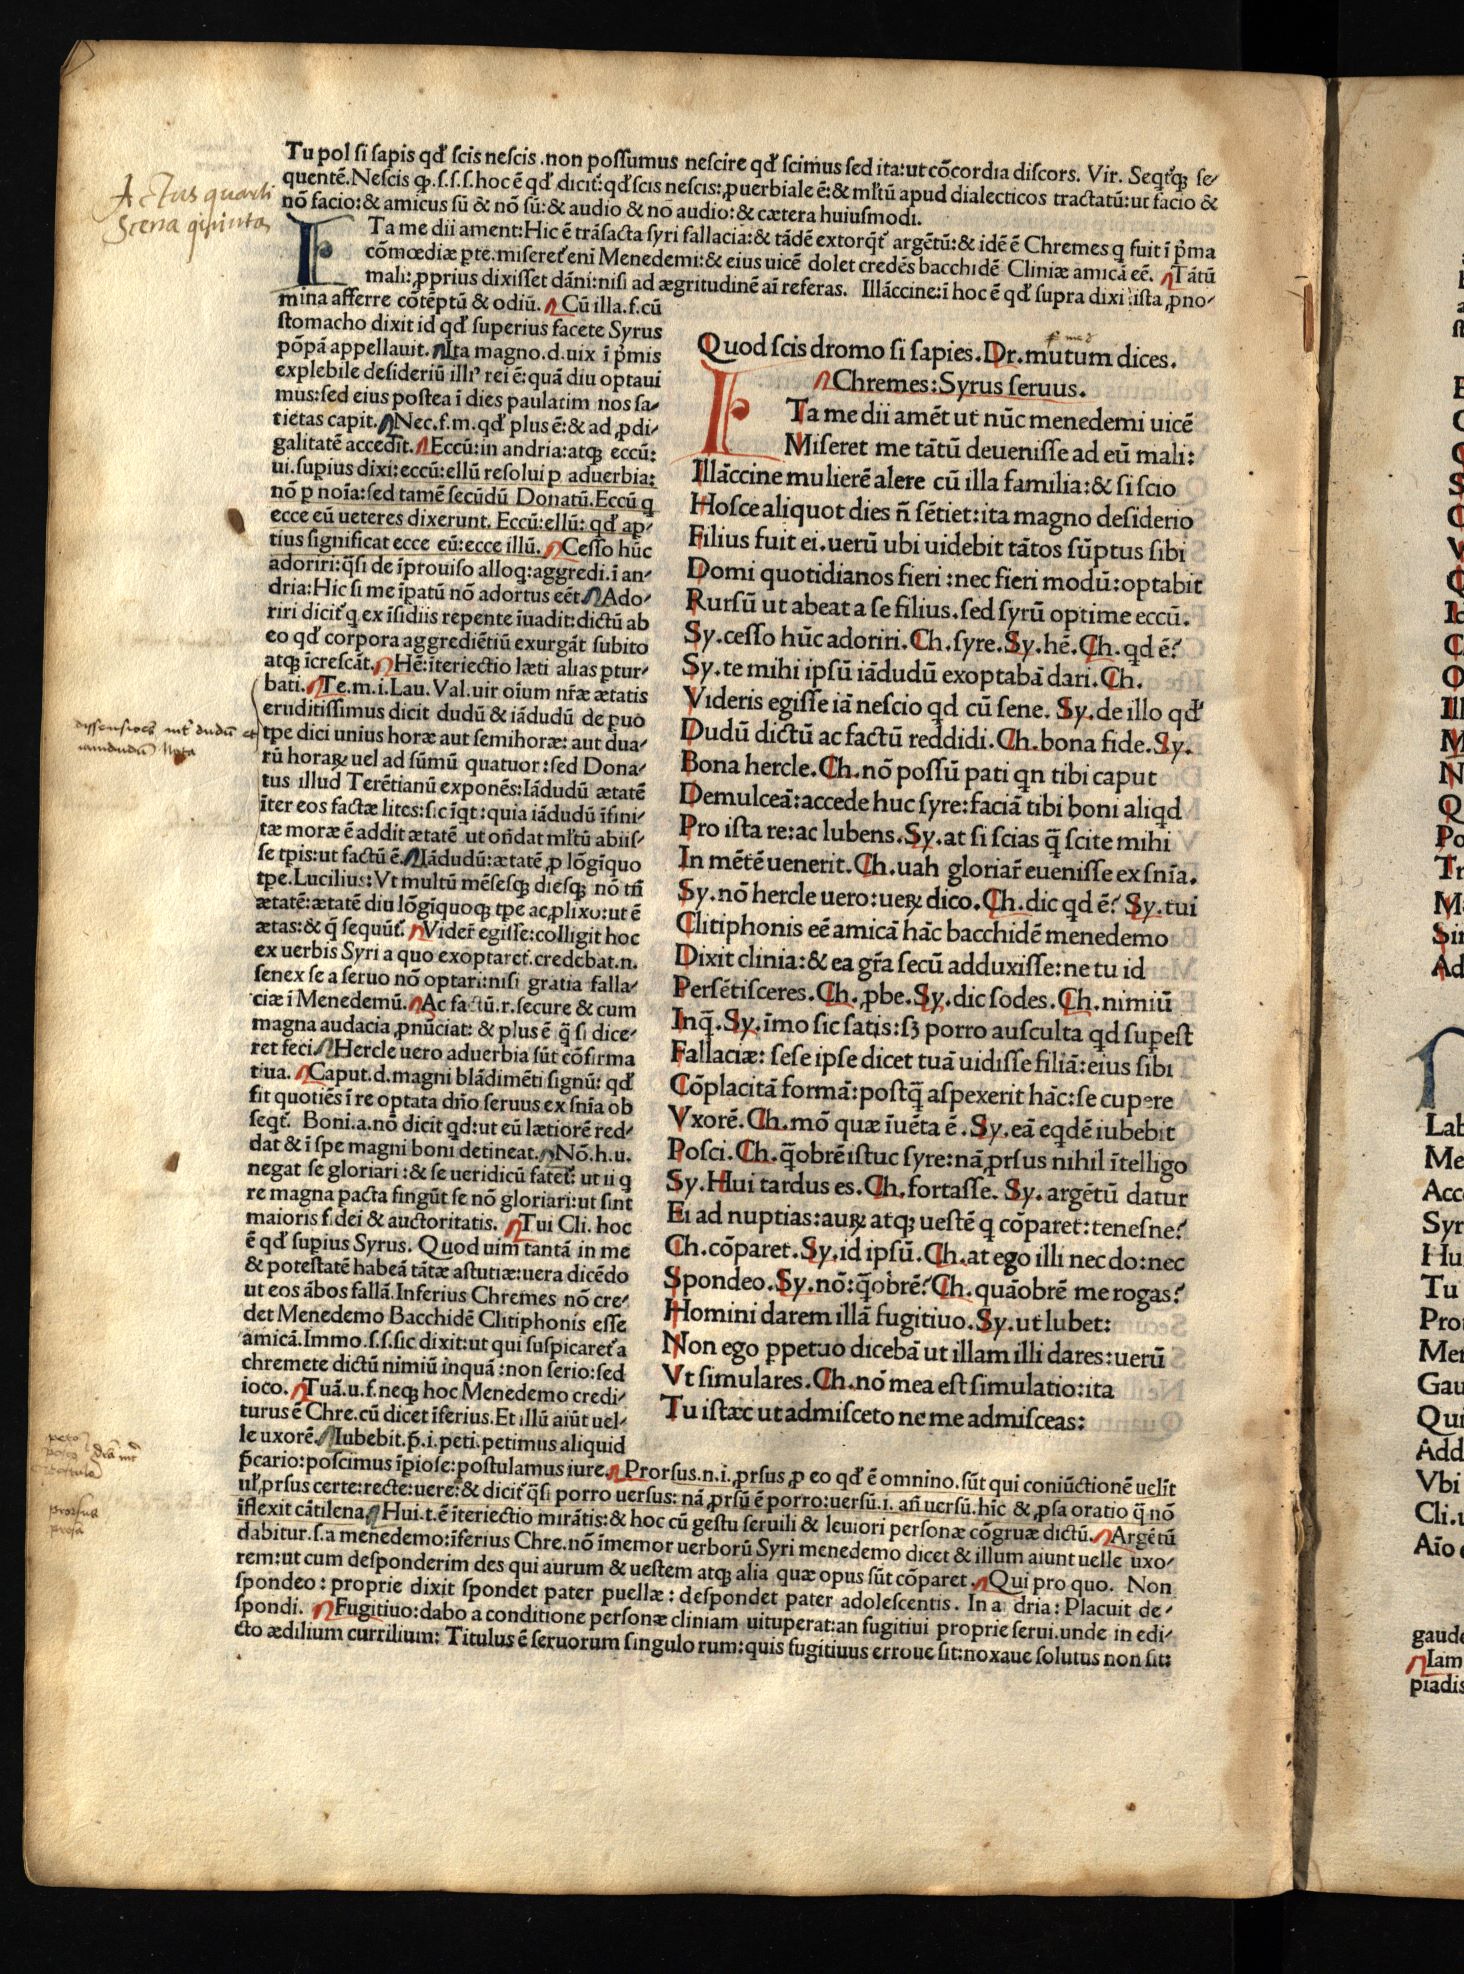 Tu pol ſi ſapis qđ ſcis neſcis .non poſſumus neſcire qđ ſcimus ſed ita:ut cõcordia diſcors. Vir. Seqt̃qꝫ ſe-
quentẽ. Neſcis qꝫ .ſ.ſ.ſ.hoc ẽ qđ dicit̃:qđ ſcis neſcis:ꝓuerbiale ẽ:& ml̃tũ apud dialecticos tractatũ:ut facio &
nõ facio:& amicus ſũ & nõ ſũ:& audio & nõ audio:& cætera huiuſmodi.
Actus quarti
Scena quinta
ITa me dii ament:Hic ẽ trãſacta ſyri fallacia:& tãdẽ extorqt̃ argẽtũ:& idẽ ẽ Chremes q fuit ĩ p̃ma
cõmœdiæ ꝑte.miſeret̃ eni Menedemi:& eius uicẽ dolet credẽs bacchidẽ Cliniæ amicã eẽ. Tãtũ
mali:ꝓprius dixiſſet dãni:niſi ad ægritudinẽ aĩ referas. Illãccine:ĩ hoc ẽ qđ ſupra dixi iſta ꝓno-
mina afferre cõtẽptũ & odiũ. Cũ illa.f.cũ
ſtomacho dixit id qđ ſuperius facete Syrus
põpã appellauit. Ita magno.d.uix ĩ p̃mis
explebile deſideriũ illi⁹ rei ẽ:quã diu optaui
mus:ſed eius poſtea ĩ dies paulatim nos ſa-
tietas capit. Nec.f.m.qđ plus ẽ:& ad ꝓdi-
galitatẽ accedĩt. Eccũ:in andria:atqꝫ eccũ:
ui.ſupius dixi:eccũ:ellũ reſolui p aduerbia:
nõ p noĩa:ſed tamẽ ſecũdũ Donatũ. Eccũ q
ecce eũ ueteres dixerunt. Eccũ:ellũ: qđ ap-
tius ſignificat ecce eũ:ecce illũ. Ceſſo hũc
adoriri:q̃ſi de ĩprouiſo alloq:aggredi.ĩ an-
dria:Hic ſi me ĩpatũ nõ adortus eẽt. Ado-
riri dicit̃ q ex ĩſidiis repente ĩuadit:dictũ ab
eo qđ corpora aggrediẽtiũ exurgãt ſubito
atqꝫ ĩcreſcãt. Hẽ:ĩteriectio læti alias ꝑtur-
bati. Te.m.i.Lau.Val.uir oĩum nr̃æ ætatis
eruditiſſimus dicit dudũ & iãdudũ de puo
tpe dici unius horæ aut ſemihoræ: aut dua-
rũ horaꝝ uel ad ſũmũ quatuor:ſed Dona-
tus illud Terẽtianũ exponẽs:Iãdudũ ætatẽ
ĩter eos factæ lites:ſic ĩqt:quia iãdudũ ĩfini-
tæ moræ ẽ addit ætatẽ ut oñdat ml̃tũ abiiſ-
ſe tpis:ut factũ ẽ. Iãdudũ:ætatẽ ꝓ lõgĩquo
tpe. Lucilius: Vt multũ mẽſeſqꝫ dieſqꝫ nõ tñ
ætatẽ:ætatẽ diu lõgĩquoqꝫ tpe ac ꝓlixo:ut ẽ
ætas:& q̃ ſequũt̃. Vider̃ egiſſe:colligit hoc
ex uerbis Syri a quo exoptaret̃.credebat.n.
ſenex ſe a ſeruo nõ optari:niſi gratia falla-
ciæ ĩ Menedemũ. Ac factũ.r.ſecure & cum
magna audacia ꝓnũciat: & plus ẽ q̃ ſi dice-
ret feci. Hercle uero aduerbia ſũt cõfirma
tiua. Caput.d.magni blãdimẽti ſignũ: qđ
fit quotiẽs ĩ re optata dño ſeruus ex ſnĩa ob
ſeqt̃. Boni.a.nõ dicit qd:ut eũ lætiorẽ red-
dat & ĩ ſpe magni boni detineat. Nõ.h.u.
negat ſe gloriari:& ſe ueridicũ fatet̃: ut ii q
re magna pacta fingũt ſe nõ gloriari:ut ſint
maioris fidei & auctoritatis. Tui Cli. hoc
ẽ qđ ſupius Syrus. Quod uim tantã in me
& poteſtatẽ habeã tãtæ aſtutiæ:uera dicẽdo
ut eos ãbos fallã. Inferius Chremes nõ cre-
det Menedemo Bacchidẽ Clitiphonis eſſe
amicã. Immo.ſ.ſ.ſic dixit:ut qui ſuſpicaret̃ a
chremete dictũ nimiũ inquã:non ſerio:ſed
ioco. Tuã.u.f.neqꝫ hoc Menedemo credi-
turus ẽ Chre.cũ dicet ĩferius. Et illũ aiũt uel-
le uxorẽ. Iubebit.p̃.i.peti.petimus aliquid
p̃cario:poſcimus ĩpioſe:poſtulamus iure. Prorſus.n.i.ꝓrſus ꝓ eo qđ ẽ omnino.ſũt qui coniũctionẽ uelĩt
ul̃ ꝓrſus certe:recte:uere:& dicit̃ q̃ſi porro uerſus: nã ꝓrſũ ẽ porro:uerſũ.i. añ uerſũ.hĩc & ꝓſa oratio q̃ nõ
ĩflexit cãtilena. Hui.t.ẽ ĩteriectio mirãtis:& hoc cũ geſtu ſeruili & leuiori perſonæ cõgruæ dictũ. Argẽtũ
dabitur.ſ.a menedemo:ĩferius Chre.nõ ĩmemor uerborũ Syri menedemo dicet & illum aiunt uelle uxo-
rem:ut cum deſponderim des qui aurum & ueſtem atqꝫ alia quæ opus ſũt cõparet. Qui pro quo. Non
ſpondeo: proprie dixit ſpondet pater puellæ: deſpondet pater adoleſcentis. In a dria: Placuit de-
ſpondi. Fugitiuo:dabo a conditione perſonæ cliniam uituperat:an fugitiui proprie ſerui.unde in edi-
cto ædilium currilium: Titulus ẽ ſeruorum ſingulo rum:quis fugitiuus erroue ſit:noxaue ſolutus non ſit:
Quod ſcis dromo ſi ſapies. Dr. mutum dices.
Chremes: Syrus ſeruus.
ITa me dii amẽt ut nũc menedemi uicẽ
Miſeret me tãtũ deueniſſe ad eũ mali:
Illãccine mulierẽ alere cũ illa familia:& ſi ſcio
Hoſce aliquot dies ñ ſẽtiet:ita magno deſiderio
Filius fuit ei.uerũ ubi uidebit tãtos ſũptus ſibi
Domi quotidianos fieri:nec fieri modũ:optabit
Rurſũ ut abeat a ſe filius.ſed ſyrũ optime eccũ.
Sy.ceſſo hũc adoriri. Ch.ſyre. Sy.hẽ. Ch.qd ẽ?
Sy.te mihi ipſũ iãdudũ exoptabã dari. Ch.
Videris egiſſe iã neſcio qd cũ ſene. Sy.de illo qđ
Dudũ dictũ ac factũ reddidi. Ch.bona fide. Sy.
Bona hercle. Ch.nõ poſſũ pati qn tibi caput
Demulceã:accede huc ſyre:faciã tibi boni aliqd
Pro iſta re:ac lubens. Sy.at ſi ſcias q̃ ſcite mihi
In mẽtẽ uenerit. Ch.uah gloriar̃ eueniſſe ex ſnĩa.
Sy.nõ hercle uero:ueꝝ dico. Ch.dic qd ẽ? Sy.tui
Clitiphonis eẽ amicã hãc bacchidẽ menedemo
Dixit clinia:& ea gr̃a ſecũ adduxiſſe:ne tu id
Perſẽtiſceres. Ch.ꝓbe. Sy.dic ſodes. Ch.nimiũ
Inq̃. Sy.ĩmo ſic ſatis:ſꝫ porro auſculta qđ ſupeſt
Fallaciæ: ſeſe ipſe dicet tuã uidiſſe filiã:eius ſibi
Cõplacitã formã:poſtq̃ aſpexerit hãc:ſe cupere
Vxorẽ. Ch.mõ quæ ĩuẽta ẽ. Sy.eã eqdẽ iubebit
Poſci. Ch.q̃obrẽ iſtuc ſyre:nã ꝓrſus nihil ĩtelligo
Sy. Hui tardus es. Ch.fortaſſe. Sy.argẽtũ datur
Ei ad nuptias:auꝝ atqꝫ ueſtẽ q cõparet:teneſne?
Ch.cõparet. Sy.id ipſũ. Ch.at ego illi nec do:nec
Spondeo. Sy.nõ:q̃obrẽ? Ch.quãobrẽ me rogas?
Homini darem illã fugitiuo. Sy.ut lubet:
Non ego ppetuo dicebã ut illam illi dares:uerũ
Vt ſimulares. Ch.nõ mea eſt ſimulatio:ita
Tu iſtæc ut admiſceto ne me admiſceas:
diſſenſioẽs int̃ dudũ et
iamdudũ Nota
peto
poſco
poſtulo
drã int̃
prorſus
proſa
Lab
Me
Acc
Syr
Hu
Tu
Pro
Mer
Gau
Qui
Add
Vbi
Cli.
Aĩo
gaude
Iam
piadis